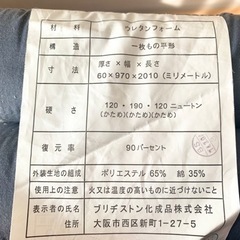 材料 ウレタンフォーム
構造 一枚もの平形
寸法 厚さ×幅×長さ
60×970×2010(ミリメートル)
硬さ 120・190・120ニュートン
(かため)(かため)(かため)
復元率 90パーセント
外装生地の組成 ポリエステル 65% 綿 35%
使用上の注意 火又は温度の高いものに近づけないこと
表示者の氏名 ブリヂストン化成品株式会社
住所 大阪市西区新町1-27-5